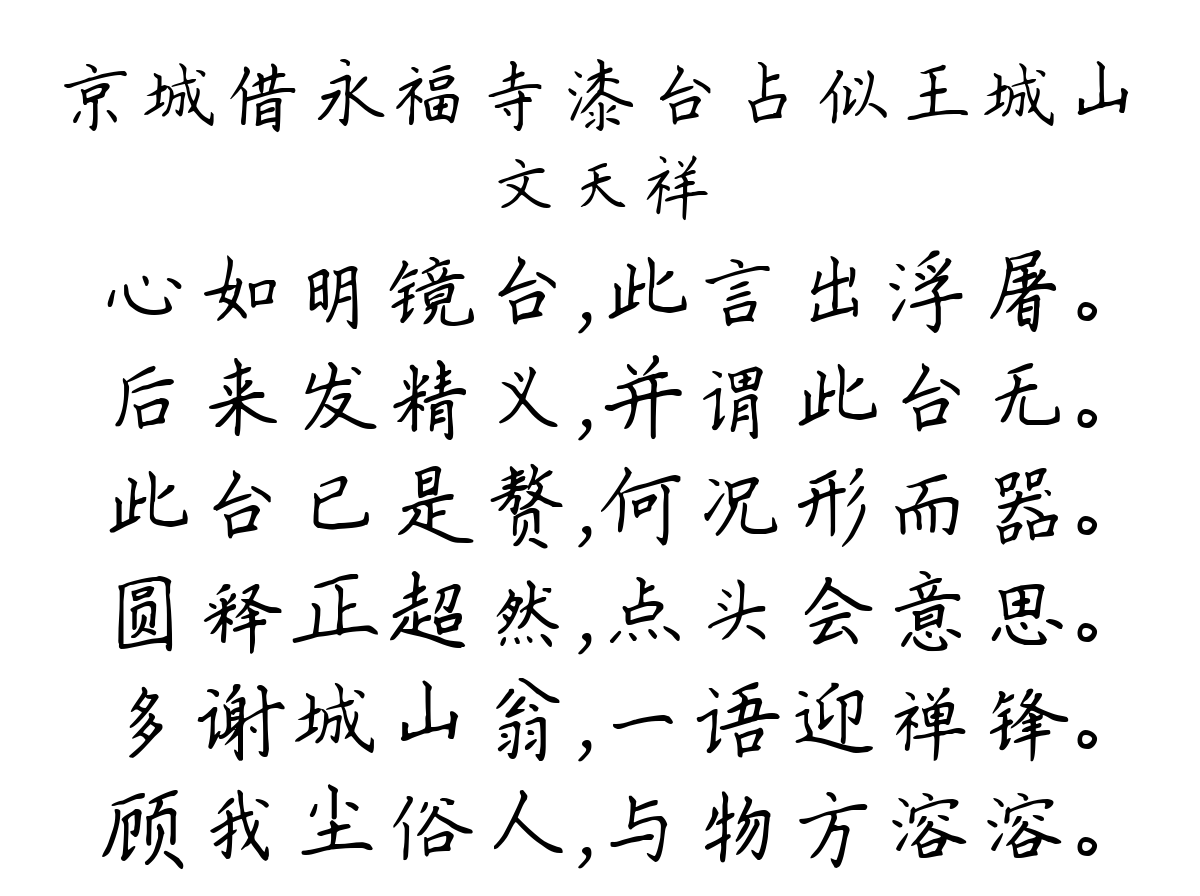 京城借永福寺漆台占似王城山
文天祥
心如明镜台,此言出浮屠。
后来发精义,并谓此台无。
此台已是赘,何况形而器。
圆释正超然,点头会意思。
多谢城山翁,一语迎禅锋。
顾我尘俗人,与物方溶溶。